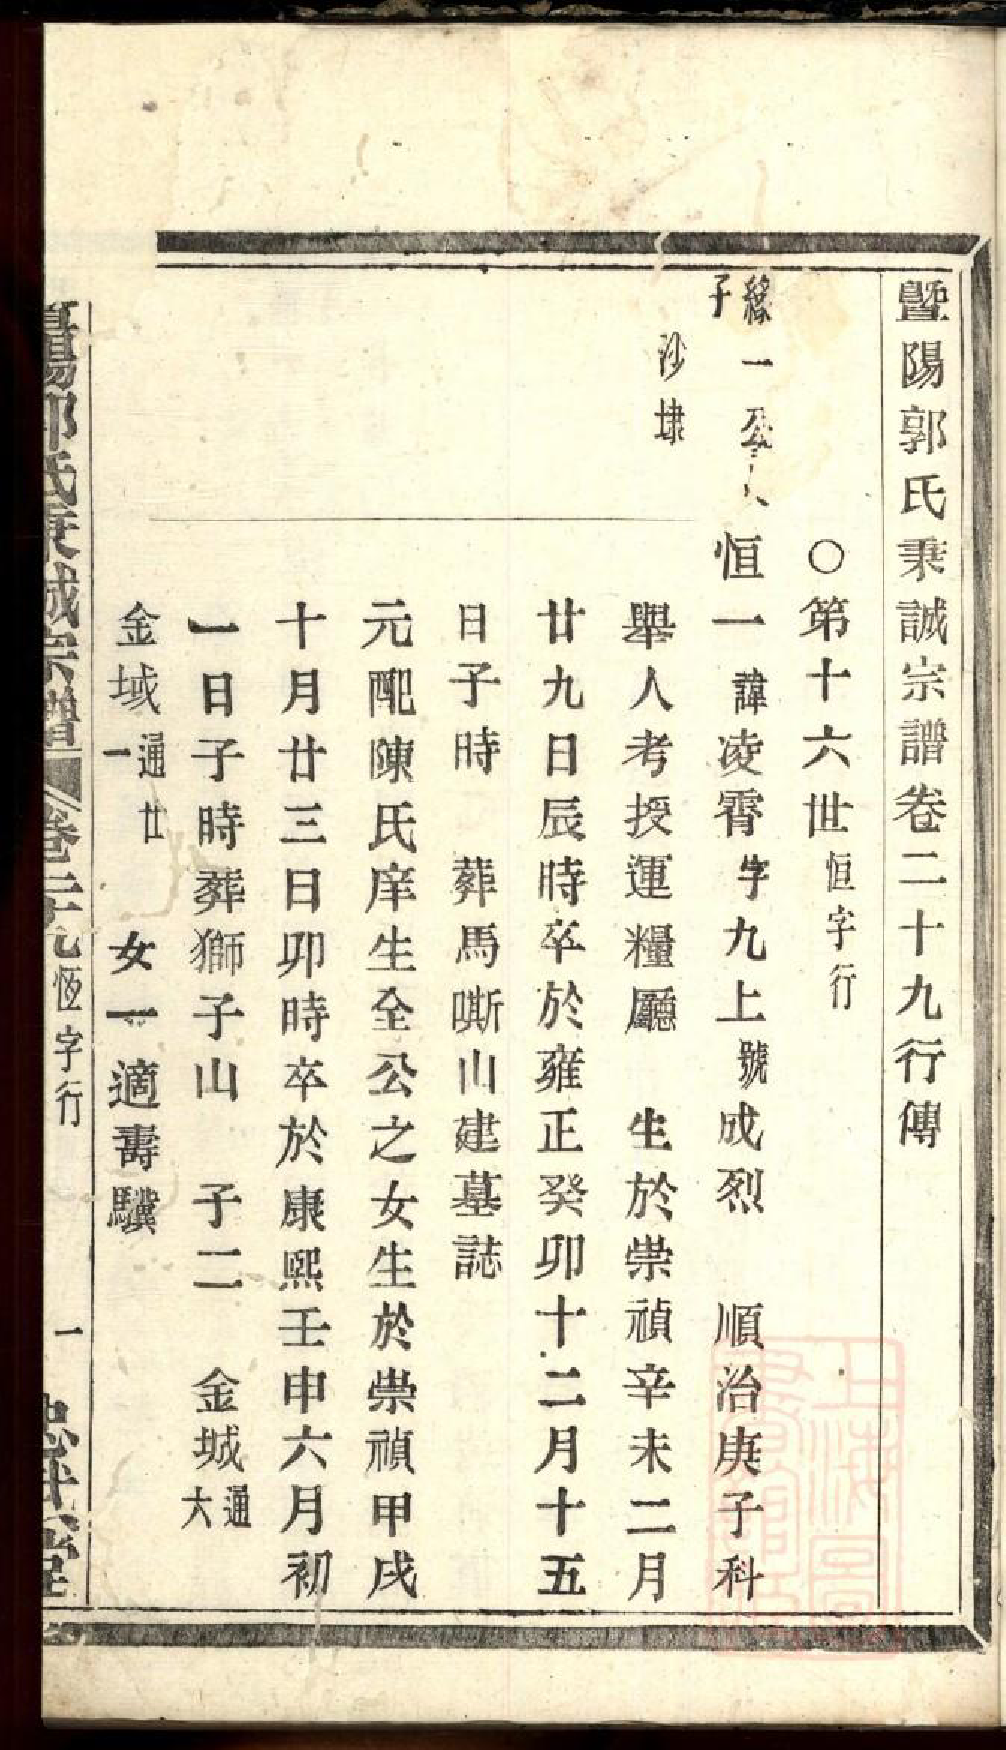 暨陽郭氏秉誠宗譜卷二十九行傳
○第十六世恒字行
緣一公
子
恒一諱凌霄字九上號成烈 順治庚子科
沙埭
舉人考授運糧廳 生於崇禎辛未二月
廿九日辰時卒於雍正癸卯十二月十五
日子時 葬馬嘶山建墓誌
元配陳氏庠生全公之女生於崇禎甲戌
十月廿三日卯時卒於康熙壬申六月初
一日子時葬獅子山 子二 金城通大
金域通廿一 女一適壽驥
暨陽郭氏秉誠宗譜 卷二十九 恆字行 一